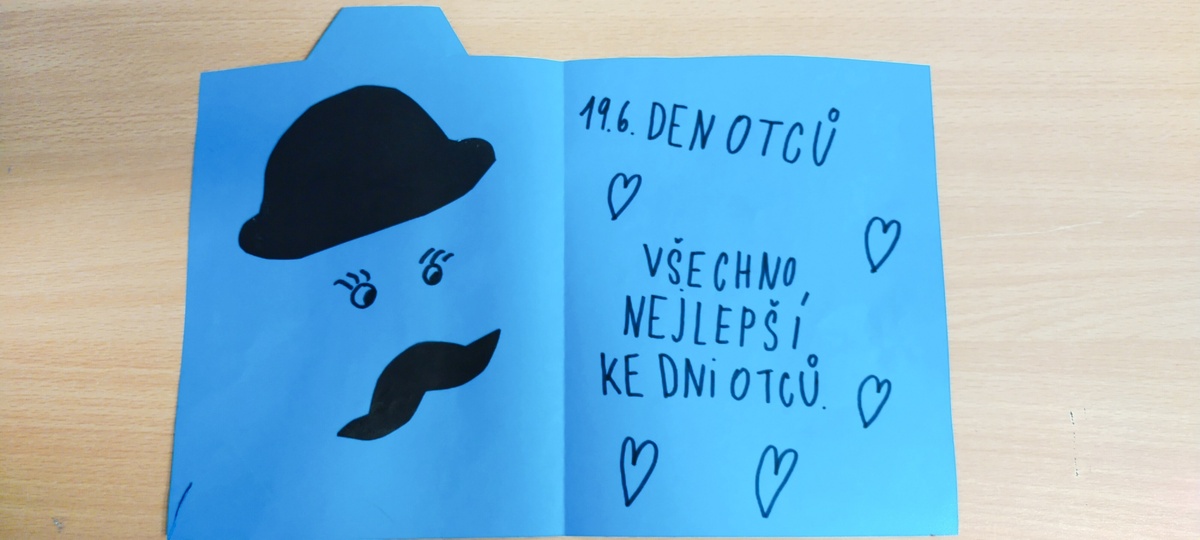 19.6. DEN OTCŮ
VŠECHNO
NEJLEPŠÍ
KE DNI OTCŮ.